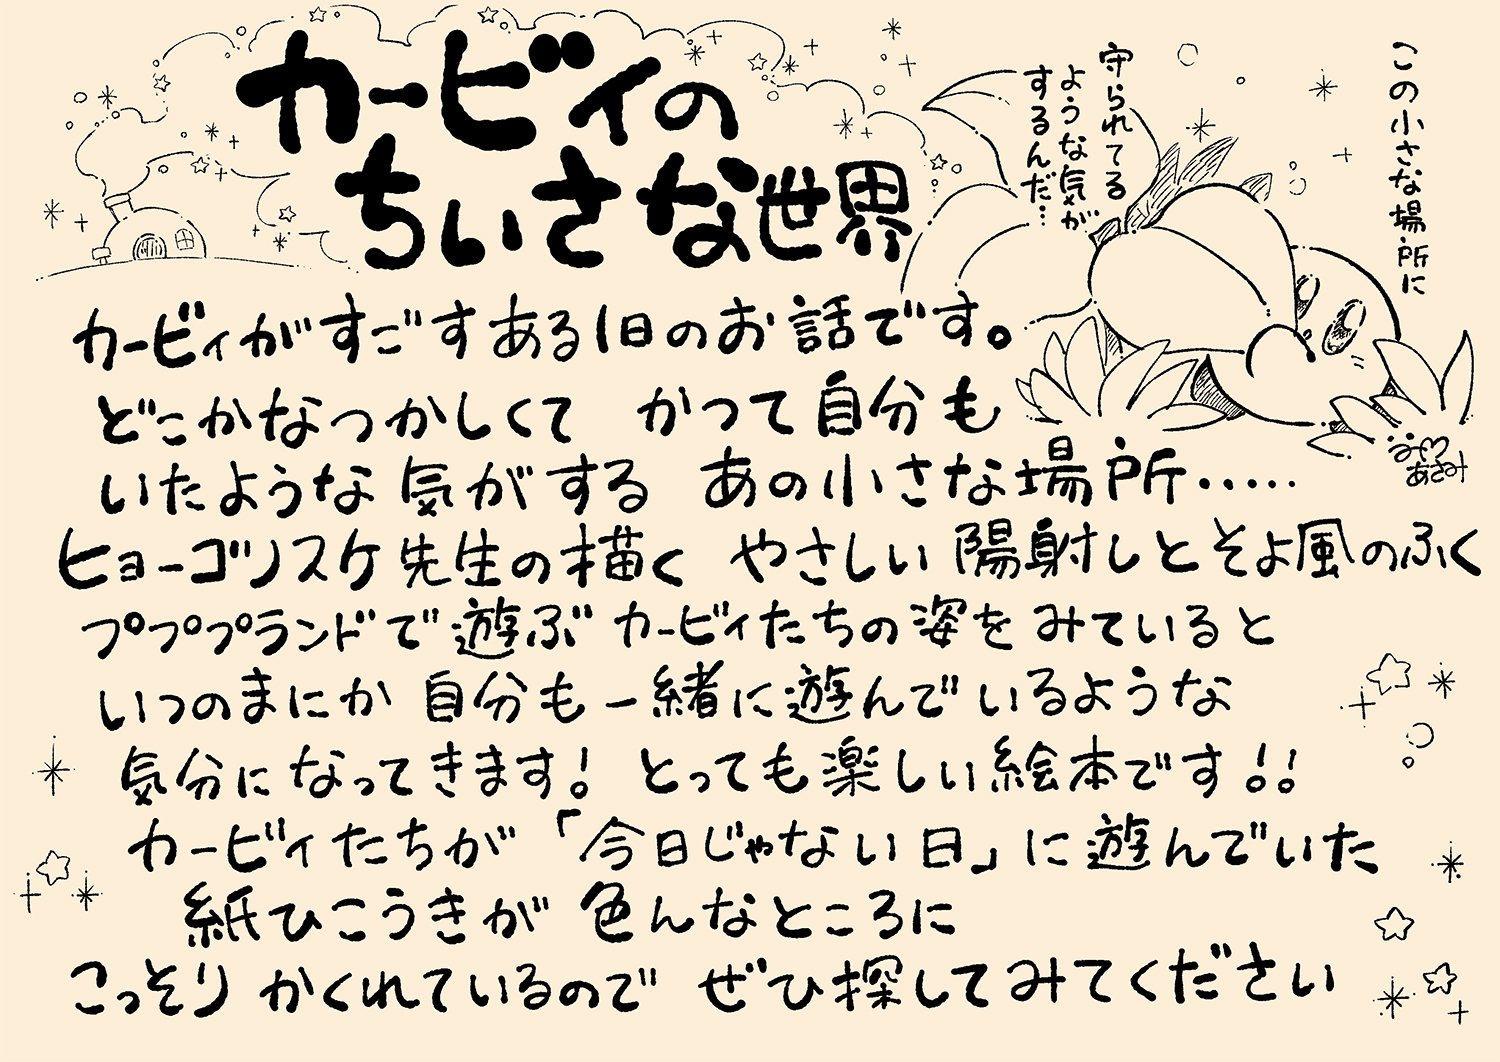 カービィの
ちいさな世界
この小さな場所に
守られてる
ような気が
するんだ…
カービィがすごすある1日のお話です。
どこかなつかしくて かつて自分も
いたような気がする あの小さな場所‥‥‥
ヒョーゴノスケ先生の描く やさしい陽射しとそよ風のふく
プププランドで遊ぶカービィたちの姿をみていると
いつのまにか自分も一緒に遊んでいるような
気分になってきます! とっても楽しい絵本です!!
カービィたちが「今日じゃない日」に遊んでいた
紙ひこうきが色んなところに
こっそりかくれているので ぜひ探してみてください
あさみ